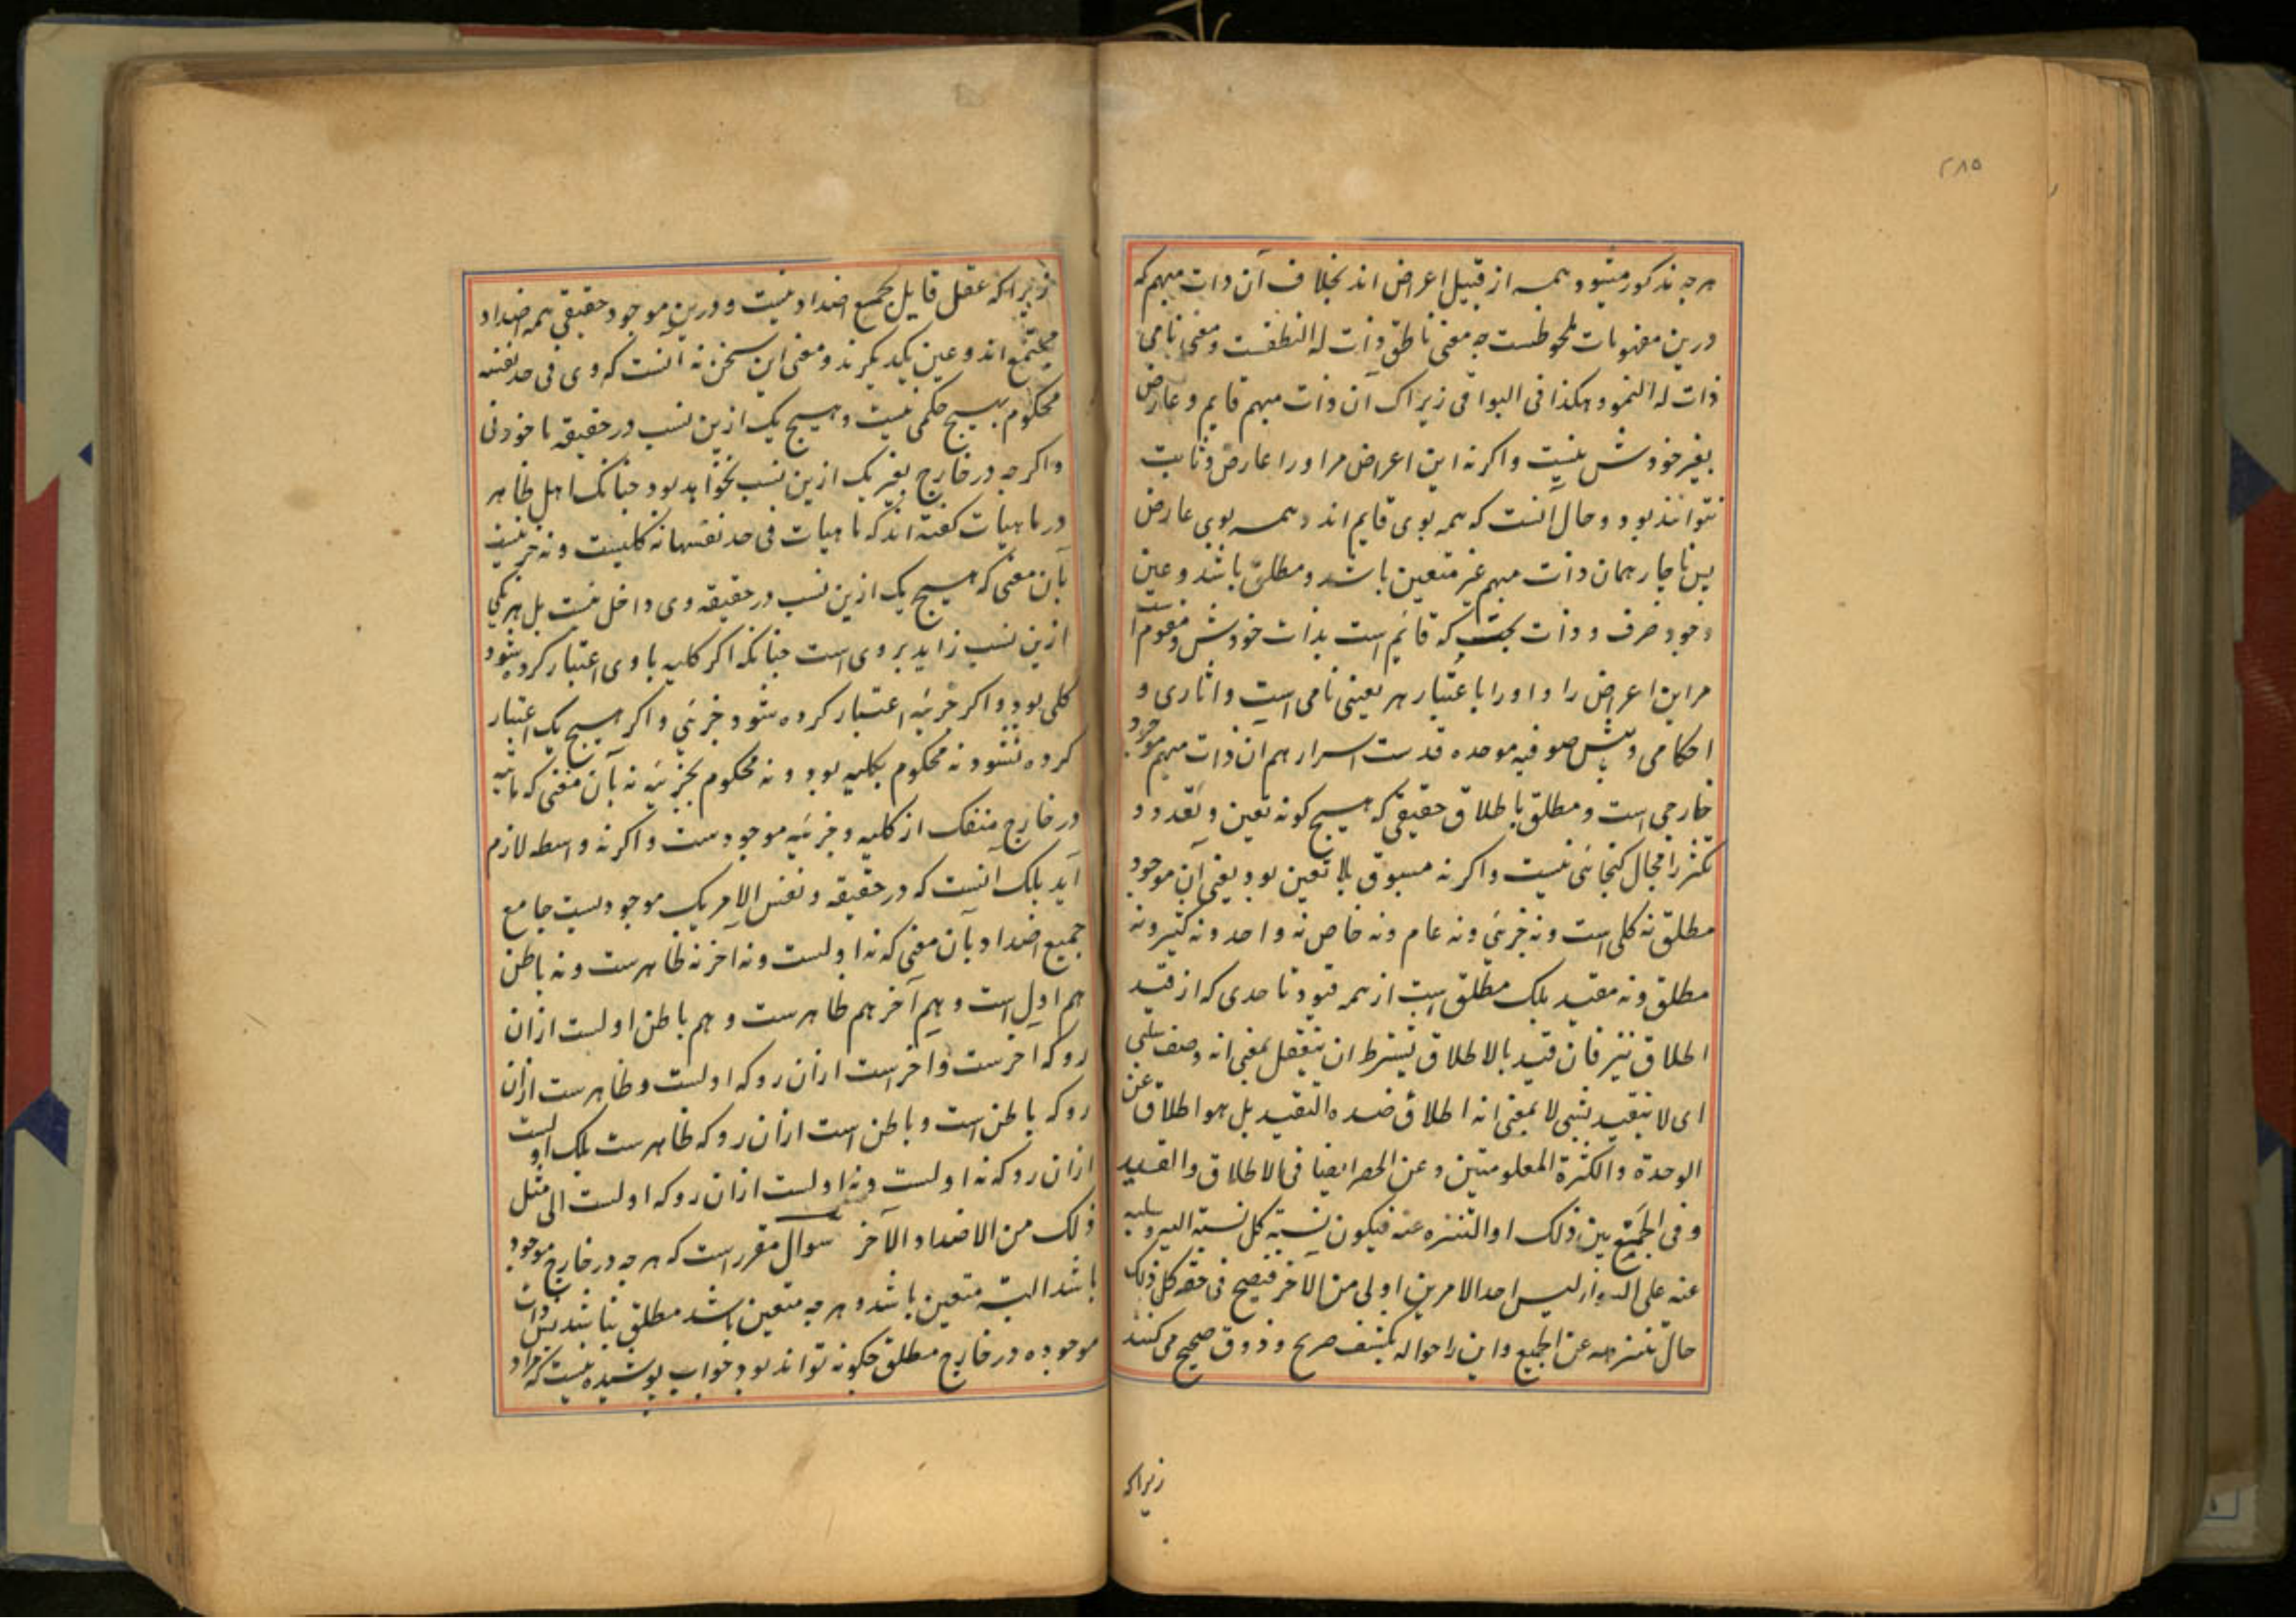 ۲۸۵
هرچه مذکور میشود همه از قبیل اعراض اند بخلاف آن ذات مبهم که
درین مفهومات ملحوظست چه معنی ناطق ذات له النطقست و معنی نامی
ذات له النمو و هکذا فی البواقی زیراک آن ذات مبهم قایم و عارض
بغیر خودش نیست و اکرنه این اعراض مر او را عارض و ثابت
نتوانند بود و حال آنست که همه بوی قایم اند و همه بوی عارض
پس ناچار همان ذات مبهم غیر متعین باشد و مطلق باشد و عین
وجود صرف و ذات بحت که قائم است بذات خودش و مقوم است
مر این اعراض را و او را باعتبار هر تعینی نامی است و اثاری و
احکامی و پیش صوفیه موحده قدست اسرارهم ان ذات مبهم موجود
خارجی است و مطلق باطلاق حقیقی که هیچ کونه تعین و تعدد و
تکثر را مجال کنجائی نیست و اکرنه مسبوق بلا تعین بود یعنی آن موجود
مطلق نه کلی است و نه جزئی و نه عام و نه خاص نه واحد و نه کثیر و نه
مطلق و نه مقید بلک مطلق است از همه قیود تا حدی که از قید
اطلاق نیز فان قید بالاطلاق یشترط ان یتعقل بمعنی انه وصف سلبی
ای لا یتقید بشی لا بمعنی انه اطلاق ضده التقید بل هو اطلاق عن
الوحدة والکثرة المعلومتین و عن الحصر ایضا فی الاطلاق والتقید
و فی الجمیع بین ذلک او التنزه عنه فیکون نسبة کل نسبة الیه و سلبه
عنه علی السواء لیس احد الامرین اولی من الآخر فیصح فی حقه کل ذلک
حال تنزهه عن الجمیع و این را حواله بکشف صریح و ذوق صحیح می کنند
زیراکه
زیراکه عقل قایل بجمع اضداد نیست و درین موجود حقیقی همه اضداد
مجتمع اند و عین یکدیکرند و معنی این سخن نه آنست که وی فی حد نفسه
محکوم بهیچ حکمی نیست و هیچ یک ازین نسب در حقیقه ماخوذ نی
و اکرچه در خارج بغیر یک ازین نسب نخواهد بود چنانک اهل ظاهر
در ماهیات کفته اند که ماهیات فی حد نفسها نه کلیست و نه جزئیست
بآن معنی که هیچ یک ازین نسب در حقیقه وی داخل نیست بل هر یکی
ازین نسب زاید بر وی است چنانکه اکر کلیه با وی اعتبار کرده شود
کلی بود و اکر جزئیه اعتبار کرده شود جزئی و اکر هیچ یک اعتبار
کرده نشود نه محکوم بکلیه بود و نه محکوم بجزئیه نه بآن معنی که ماهیه
در خارج منفک از کلیه و جزئیه موجودست و اکرنه واسطه لازم
آید بلک آنست که در حقیقه و نفس الامر یک موجودیست جامع
جمیع اضداد بآن معنی که نه اولست و نه آخر نه ظاهرست و نه باطن
هم اول است و هم آخر هم ظاهرست و هم باطن اولست ازان
روکه اخرست و اخرست ازان روکه اولست و ظاهرست ازان
روکه باطن است و باطن است ازان روکه ظاهرست بلک اولست
ازان روکه نه اولست و نه اولست ازان روکه اولست الی مثل
ذلک من الاضداد الآخر سوال مقررست که هرچه در خارج موجود
باشد البته متعین باشد و هرچه متعین باشد مطلق نباشد پس ذات
موجوده در خارج مطلق چکونه تواند بود جواب پوشیده نیست که مراد